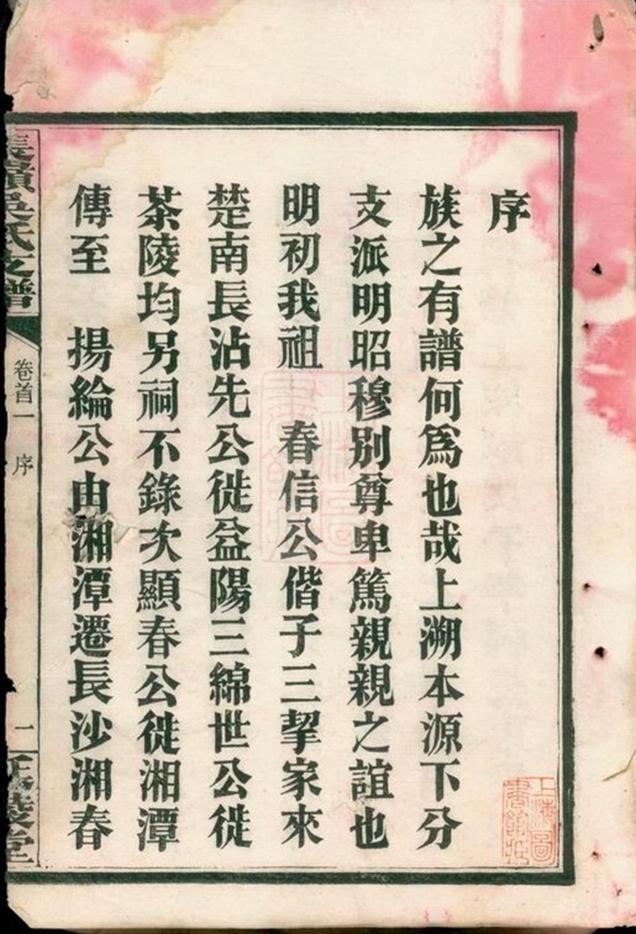 序
族之有譜何爲也哉上溯本源下分
支派明昭穆別尊卑篤親親之誼也
明初我祖　春信公偕子三挈家來
楚南長沾先公徙益陽三綿世公徙
茶陵均另祠不錄次顯春公徙湘潭
傳至　揚綸公由湘潭遷長沙湘春
吳氏支譜
卷首一
序
一
上海圖
書館藏